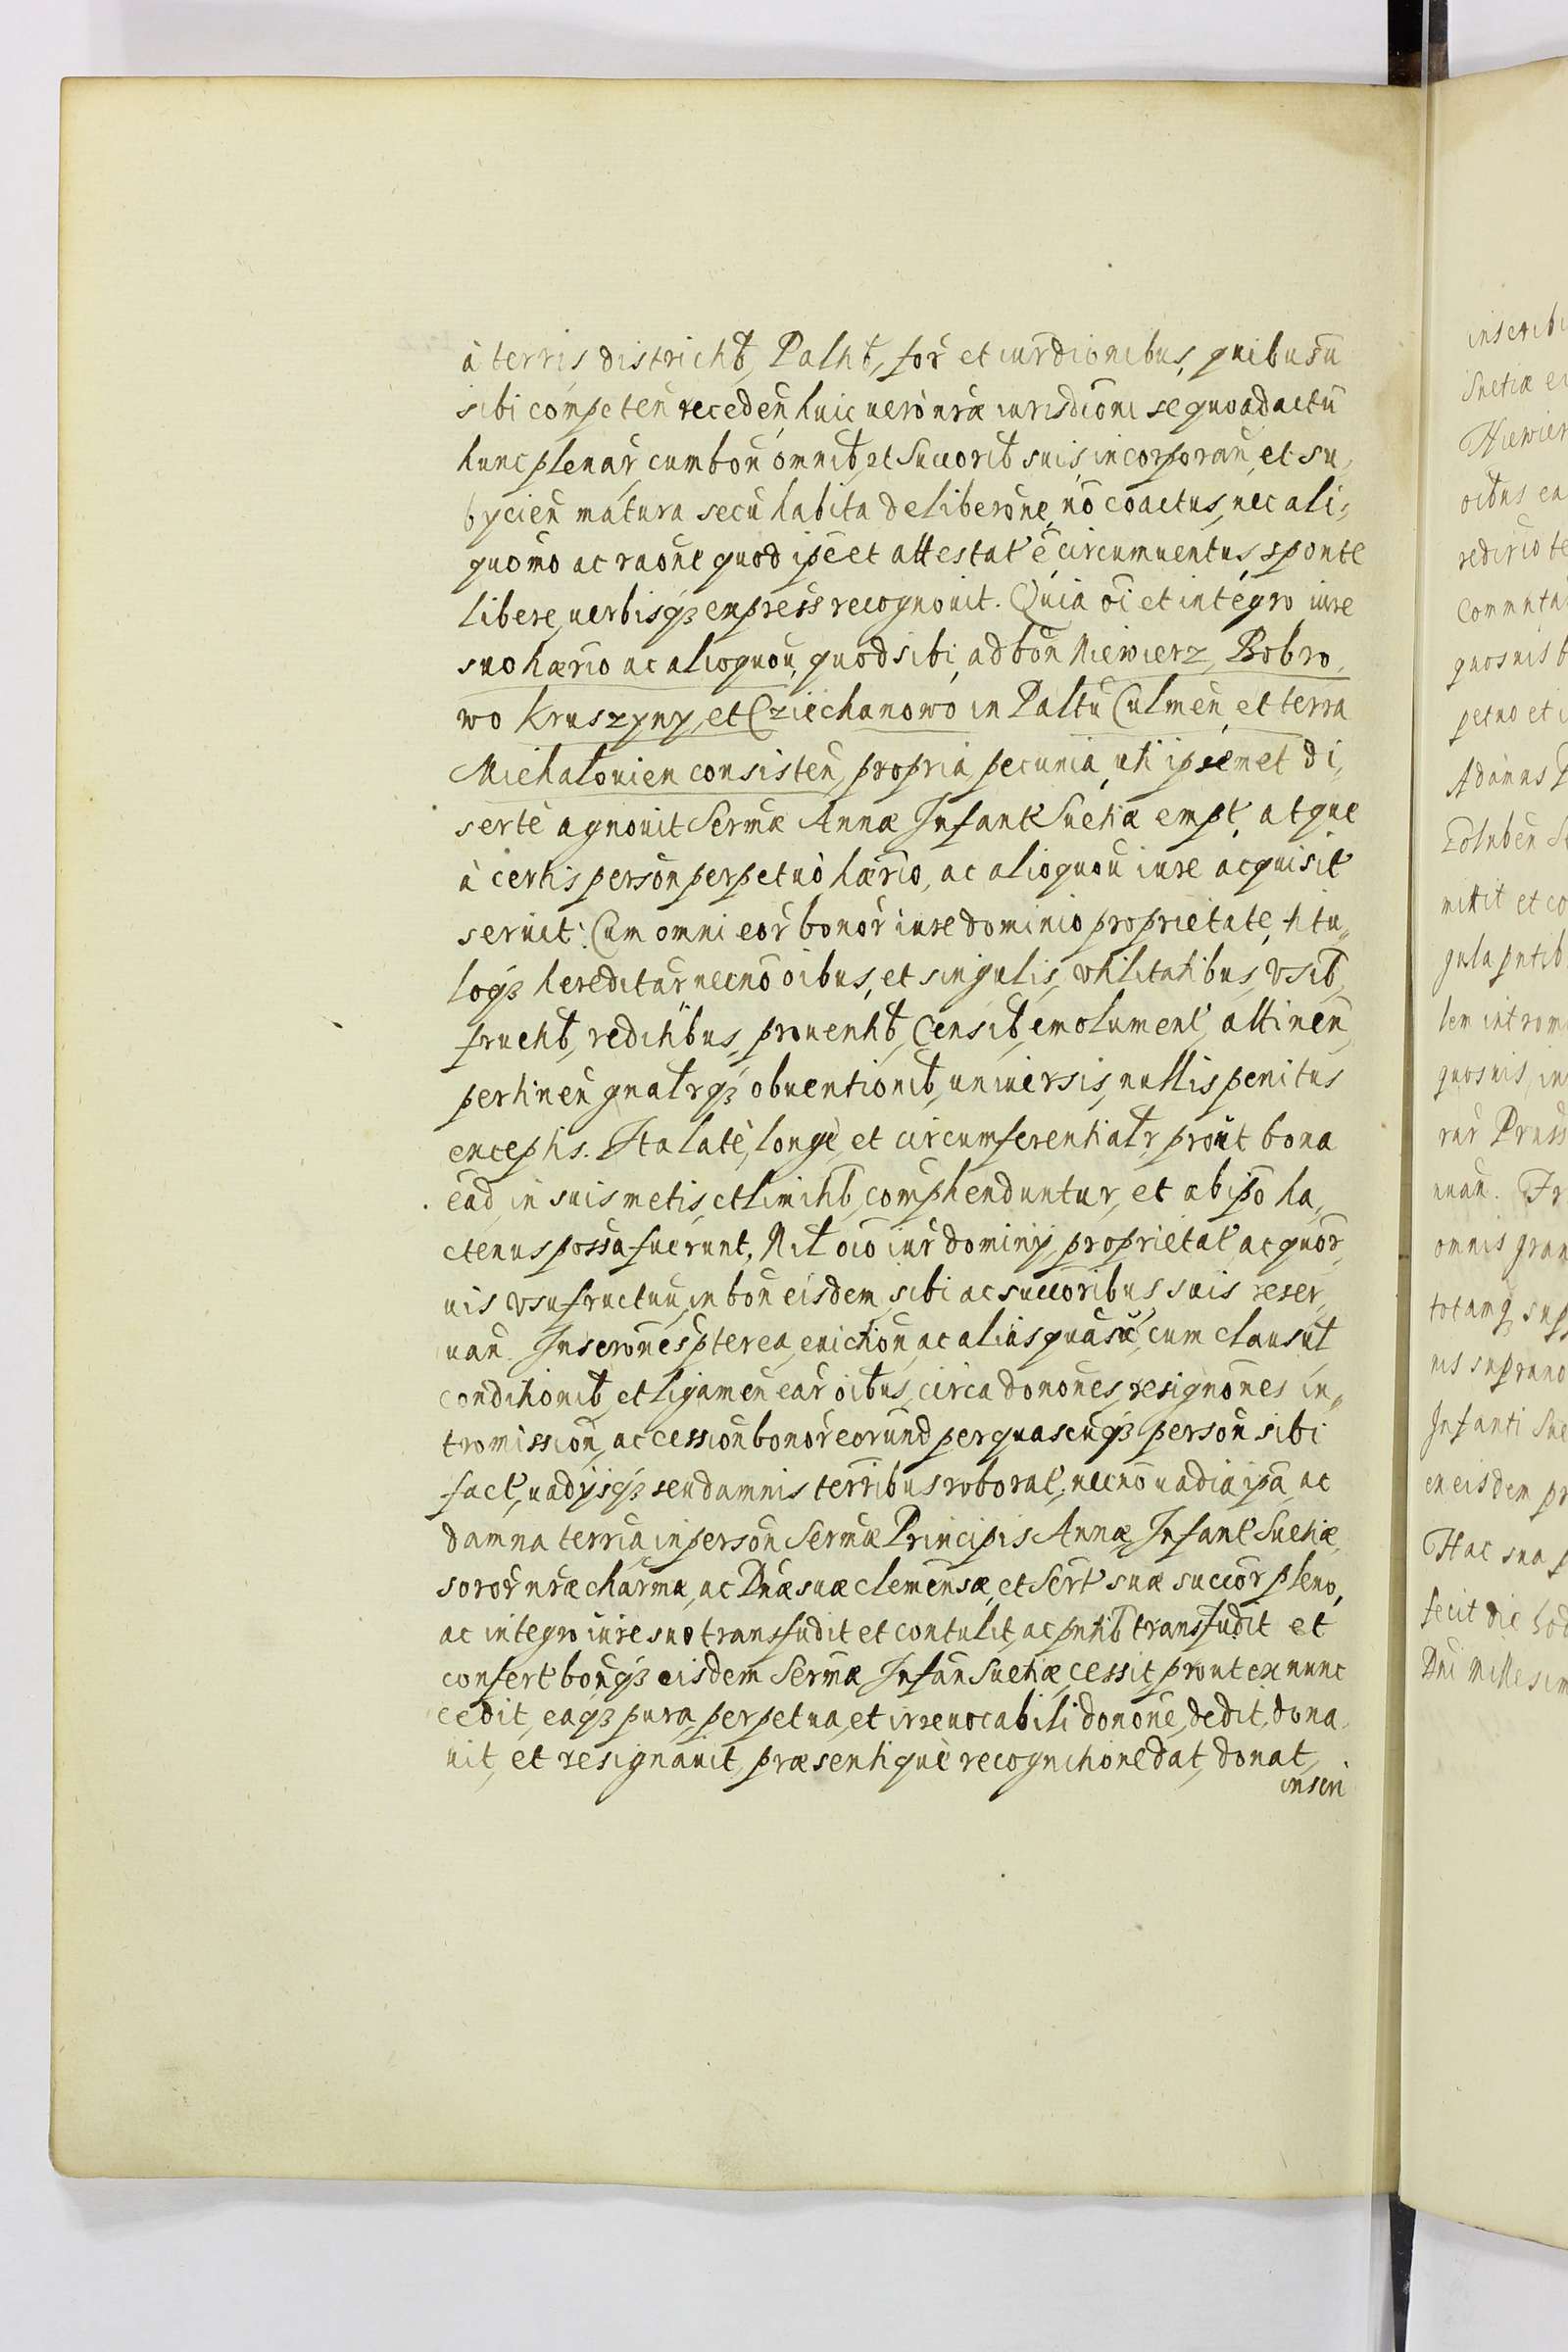 à terris districtib, Paltib, for et iurdicionibus, quibusu
sibi competen recedeñ huic uerò nrae iurisdioni se quoad actũ
hunc plenar cum boñ omnib, et Succorib suis, incorporañ, et su,
bycieñ matura secũ habita deliberone, nõ coactus, nec ali,
quo mo ac raone quod ipe et attestat' ẽ circumuentus, sponte
libere, uerbisqз express recognouit. Quia oi et integro iure
suo haerio ac alioquou, quod sibi, ad boñ Niewierz, Bobro,
wo Kruszyny, et Cziechanowo in Paltũ Culmeñ et terra
Michalouien consisteñ, propria, pecunia, uti ipsemet di,
sertè agnouit Sermae Annae Infant' Suetiae empt, atque
à certis persoñ perpetuò haerio, ac alioquou iure acquisit
seruit: Cum omni eor̃ bonor̃ iure dominio proprietate, titu,,
loqз hereditar̃ necnõ oibus, et singulis, vtilitatibus, vsib,
fructib, reditibus, prouentib, Censib, emolument', attineñ,
pertineñ gnaltrqз obuentionib, uniuersis, nullis penitus
exceptis. Ita latè, longè, et circumferentialtr prout bona
ead, in suis metis, et limitib, comphenduntur, et ab ipo ha,,
ctenus possa fuerunt, Nil oio iur̃ dominij, proprietat' ac quor,
uis vsufructuu, in boñ eisdem, sibi ac succoribus suis reser,
uañ. Inscrones pterea, euictioñ, ac alias quasũ, cum clausul
conditionib, et ligameñ ear̃ oibus, circa donones, resignones in,,
tromissioñ, ac cessioñ bonor̃ eorund per quascuqз persoñ sibi
fact', uadijsqз seu damnis terribus roborat', necnõ uadia ipa, ac
damna terria in persoñ Sermae Principis Annae Infant' Suetiae,
soror̃ nrae charmae, ac Dnae suae clemensae, et Sert' suae succor̃ pleno,
ac integro iure suo transfudit et contulit, ac pntib transfudit et
confert boñqз eisdem Sermae Infañ Suetiae, cessit, prout ex nunc
cedit, eaqз pura, perpetua, et irreuocabili donone, dedit, dona,
uit, et resignauit, praesentique recognitione dat, donat,
inscri
inscribi
Suetiae
Niewier
oibus ea
redirio te
Commuta
quosuis b
petuo et i
Adamus
Golubeñ
mittit et co
gula pntib
lem introm
quosuis, in
rar Pruss
uuan.
omnis gran
totamq sup
nis suprano
Infanti Sue
ex eisdem pr
Hac sua
fecit die hod
Dni Millesim